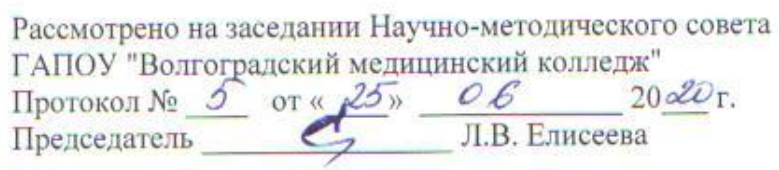 Рассмотрено на заседании Научно-методического совета
ГАПОУ "Волгоградский медицинский колледж"
Протокол № 5 от « 25» 06 2020 г.
Председатель Л.В. Елисеева